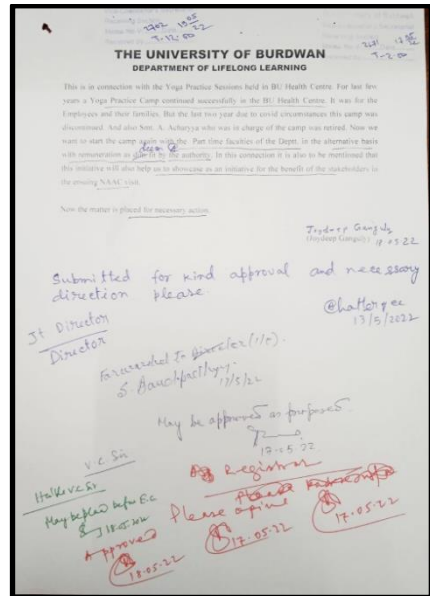 2702 13.05
22
T-12:00
2671 13.05
22
T-2:00
THE UNIVERSITY OF BURDWAN
DEPARTMENT OF LIFELONG LEARNING
This is in connection with the Yoga Practice Sessions held in BU Health Centre. For last few
years a Yoga Practice Camp continued successfully is the BU Health Centre. It was for the
Employees and their families. But the last two year due to covid circumstances this camp was
discontinued. And also Smt. A. Acharyya who was in charge of the camp was retired. Now we
want to start the camp again with the Part time faculties of the Dept. in the alternative basis
deem fit
with remuneration as by the authority. In this connection it is also to be mentioned that
this initiative will also help us to showcase as an initiative for the benefit of the stakeholders in
the ensuing NAAC visit.
Now the matter is placed for necessary action.
Joydeep Ganguly
(Joydeep Ganguly) 18.05.22
Submitted for kind approval and necessary
direction please.
Chatterjee
13/5/2022
Jt Director
Director
Forwarded to Director
13/5/22
May be approved as proposed.
17.05.22
V.C. Sir
Registrar
Hon'ble VC Sir
May be placed before E.C
18.05.2022
Please opine
17.05.22
17.05.22
Approved
18.05.22